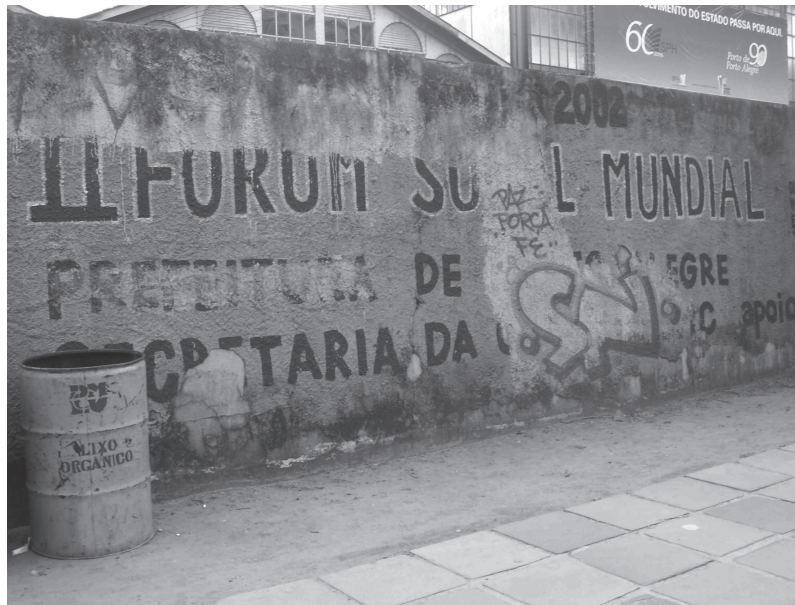 VIMENTO DO ESTADO PASSA POR AQUI.
60 SPH
Porto de
Porto Alegre
90
2002
II FORUM SO L MUNDIAL
PAZ
FORÇA
FÉ
PREFEITURA DE EGRE
SECRETARIA DA
apoio
LIXO
ORGÂNICO